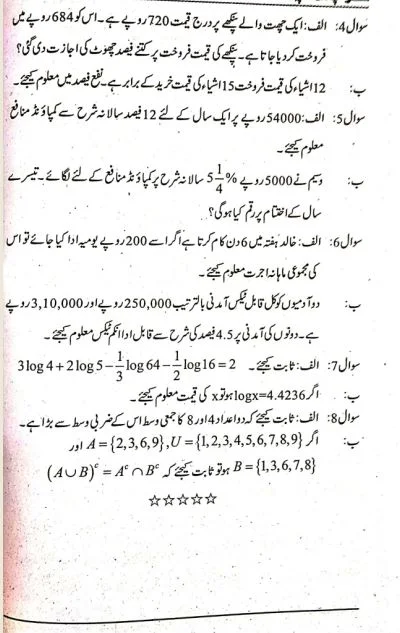 سوال4: الف: ایک چھت والے پنکھے پر درج قیمت 720 روپے ہے۔ اس کو 684 روپے میں
فروخت کر دیا جاتا ہے۔ پنکھے کی قیمت فروخت پر کتنے فیصد چھوٹ کی اجازت دی گئی؟
ب: 12 اشیاء کی قیمت فروخت 15 اشیاء کی قیمت خرید کے برابر ہے۔ نفع فیصد میں معلوم کیجئے۔
سوال5: الف: 54000 روپے پر ایک سال کے لئے 12 فیصد سالانہ شرح سے کمپاؤنڈ منافع
معلوم کیجئے۔
ب: وسیم نے 5000 روپے 5 1/4 % سالانہ شرح پر کمپاؤنڈ منافع کے لئے لگائے۔ تیسرے
سال کے اختتام پر رقم کیا ہوگی؟
سوال6: الف: خالد ہفتہ میں 6 دن کام کرتا ہے اگر اسے 200 روپے یومیہ ادا کیا جائے تو اس
کی مجموعی ماہانہ اجرت معلوم کیجئے۔
ب: دو آدمیوں کو کل قابل ٹیکس آمدنی بالترتیب 250,000 روپے اور 3,10,000 روپے
ہے۔ دونوں کی آمدنی پر 4.5 فیصد کی شرح سے قابل ادا انکم ٹیکس معلوم کیجئے۔
سوال7: الف: ثابت کیجئے۔ 3 log 4 + 2 log 5 − 1/3 log 64 − 1/2 log 16 = 2
ب: اگر logx=4.4236 ہو تو x کی قیمت معلوم کیجئے۔
سوال8: الف: ثابت کیجئے کہ دو اعداد 4 اور 8 کا جمعی وسط اس کے ضربی وسط سے بڑا ہے۔
ب: اگر A = {2,3,6,9} , U = {1,2,3,4,5,6,7,8,9} اور
B = {1,3,6,7,8} ہو تو ثابت کیجئے کہ (A ∪ B)ᶜ = Aᶜ ∩ Bᶜ
☆☆☆☆☆